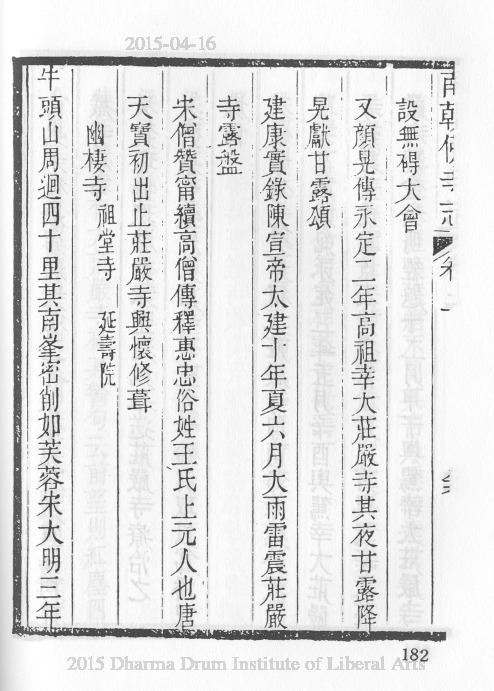 2015-04-16
南朝佛寺志 卷
設無碍大會
又顏晃傳永定二年高祖幸大莊嚴寺其夜甘露降
晃獻甘露頌
建康實錄陳宣帝太建十年夏六月大雨雷震莊嚴
寺露盤
宋僧贊甯續高僧傳釋惠忠俗姓王氏上元人也唐
天寶初出止莊嚴寺興懷修葺
幽棲寺 祖堂寺 延壽院
牛頭山周迴四十里其南峯密削如芙蓉宋大明三年
182
2015 Dharma Drum Institute of Liberal Arts